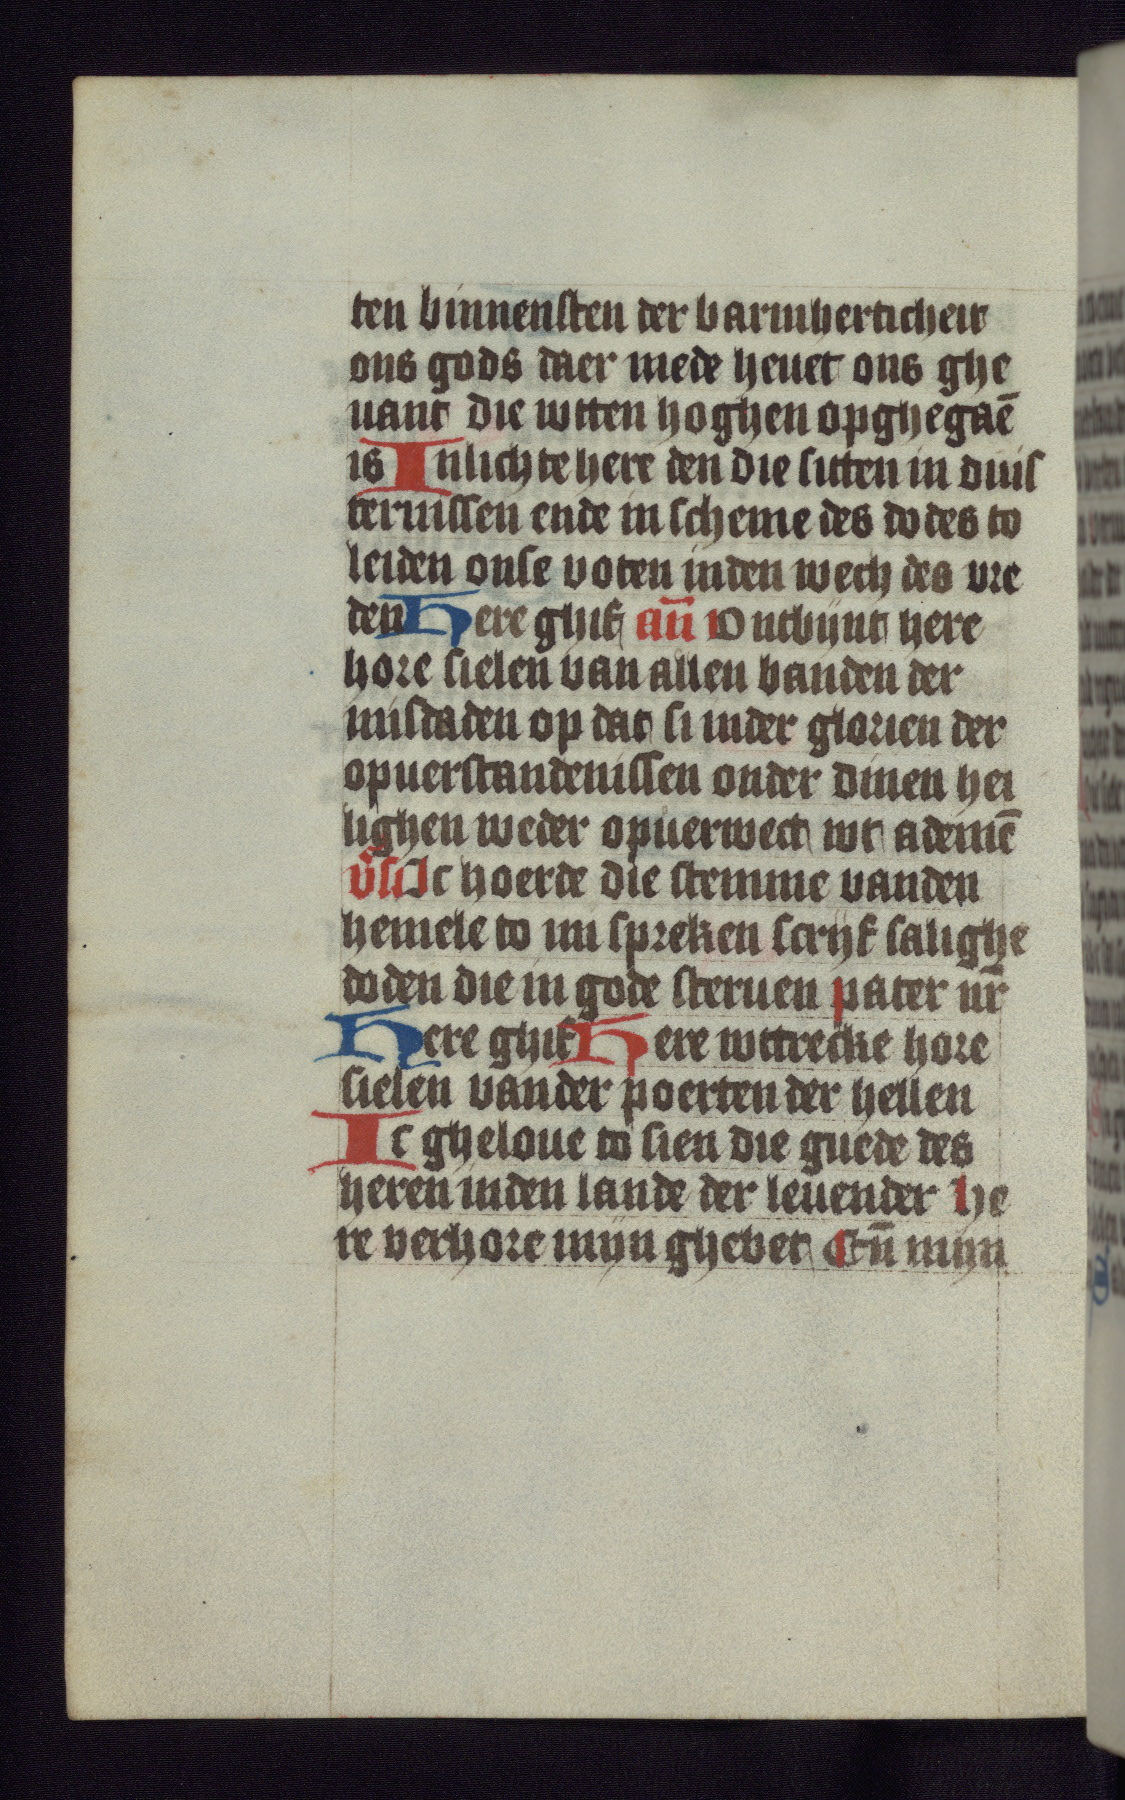 ten binnensten der barmherticheit
ons gods daer mede heuet ons ghe
uant die wtten hoghen opghegaē
is Inlichte here den die sitten in duis
ternissen ende in scheme des dodes to
leiden onse voten inden wech des vre
den Here ghif an̄ Ontbijnt here
hore sielen van allen banden der
misdaden op dat si inder glorien der
opuerstandenissen onder dinen hei
lighen weder opuerwect wt ademē
v̄si Ic hoerde die stemme vanden
hemele to mi spreken scrijf salighe
doden die in gode steruen pater nr̄
Here ghif Here wttrecke hore
sielen vander poerten der hellen
Ic gheloue to sien die guede des
heren inden lande der leuender he
re verhore mijn ghebet En̄ mijn